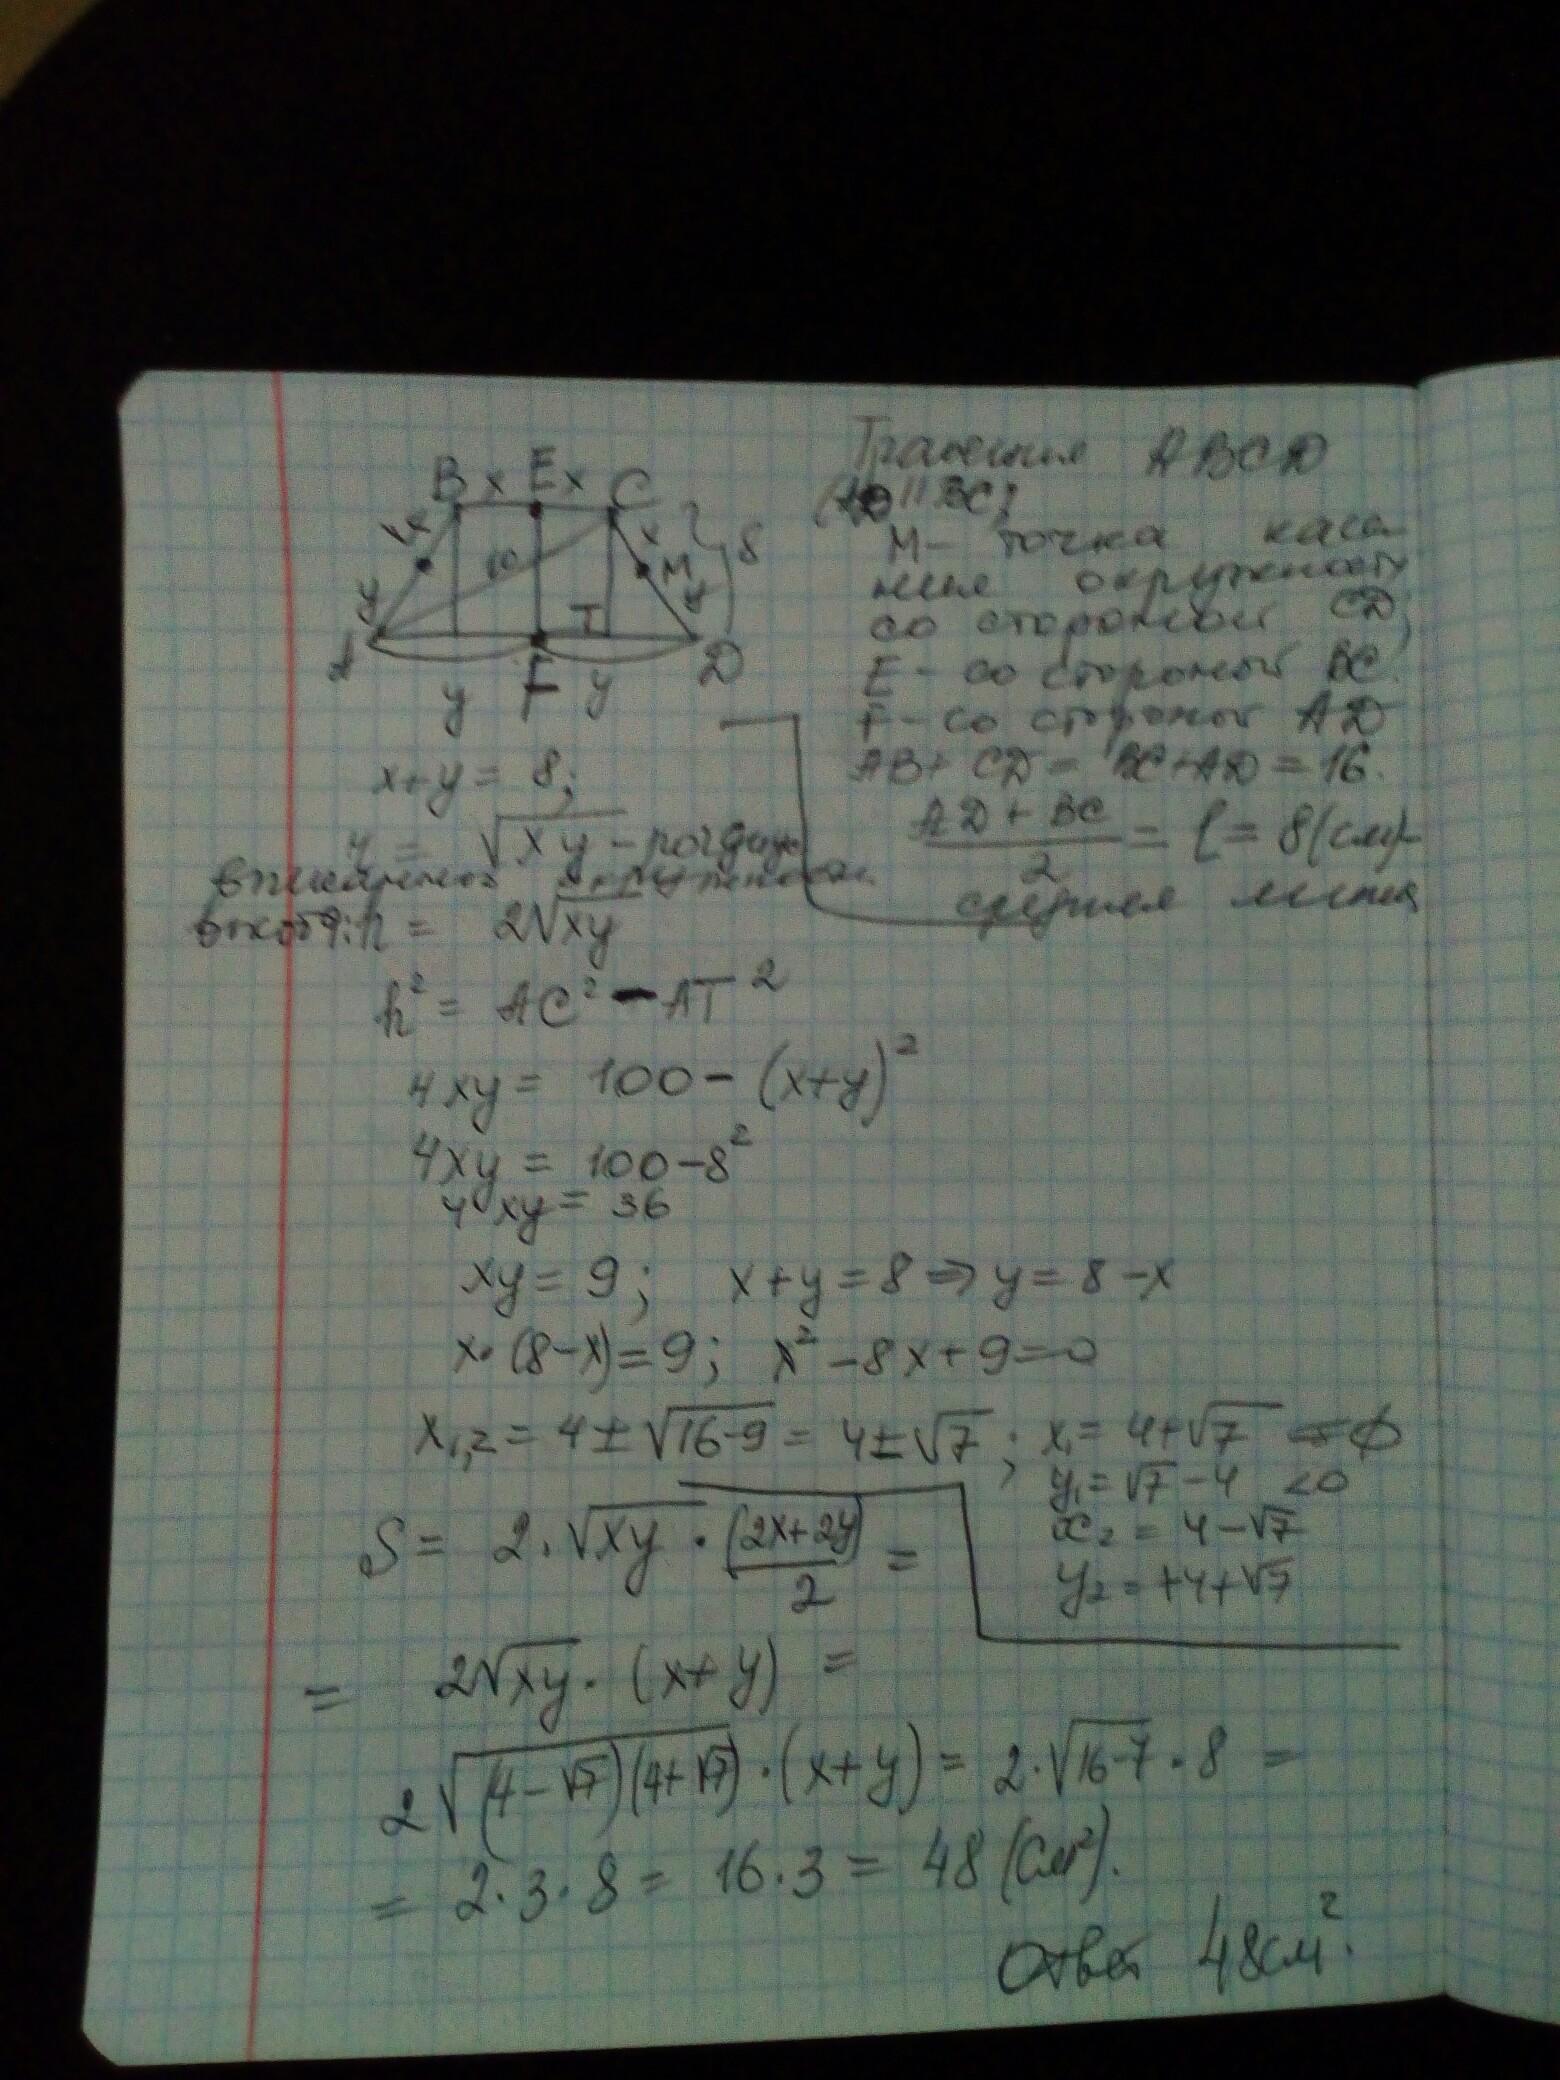 B x E x C
x x 8
y 10 M y
T
A F D
y y
Трапеция ABCD
(AD || BC)
M - точка каса-
ния окружности
со стороной CD,
E - со стороной BC.
F - со стороной AD
AB + CD = BC + AD = 16.
(AD + BC)/2 = l = 8 (см) -
средняя линия
x + y = 8;
r = √xy - радиус
вписанной окружности.
h = 2√xy
h² = AC² - AT²
4xy = 100 - (x+y)²
4xy = 100 - 8²
4xy = 36
xy = 9; x + y = 8 ⇒ y = 8 - x
x·(8-x) = 9; x² - 8x + 9 = 0
x₁,₂ = 4 ± √16-9 = 4 ± √7; x₁ = 4 + √7 = ∅
y₁ = √7 - 4 < 0
x₂ = 4 - √7
y₂ = +4 + √7
S = 2·√xy · (2x+2y)/2 =
= 2√xy · (x+y) =
2√(4-√7)(4+√7) · (x+y) = 2·√16-7 · 8 =
= 2·3·8 = 16·3 = 48 (см²).
Ответ 48см².